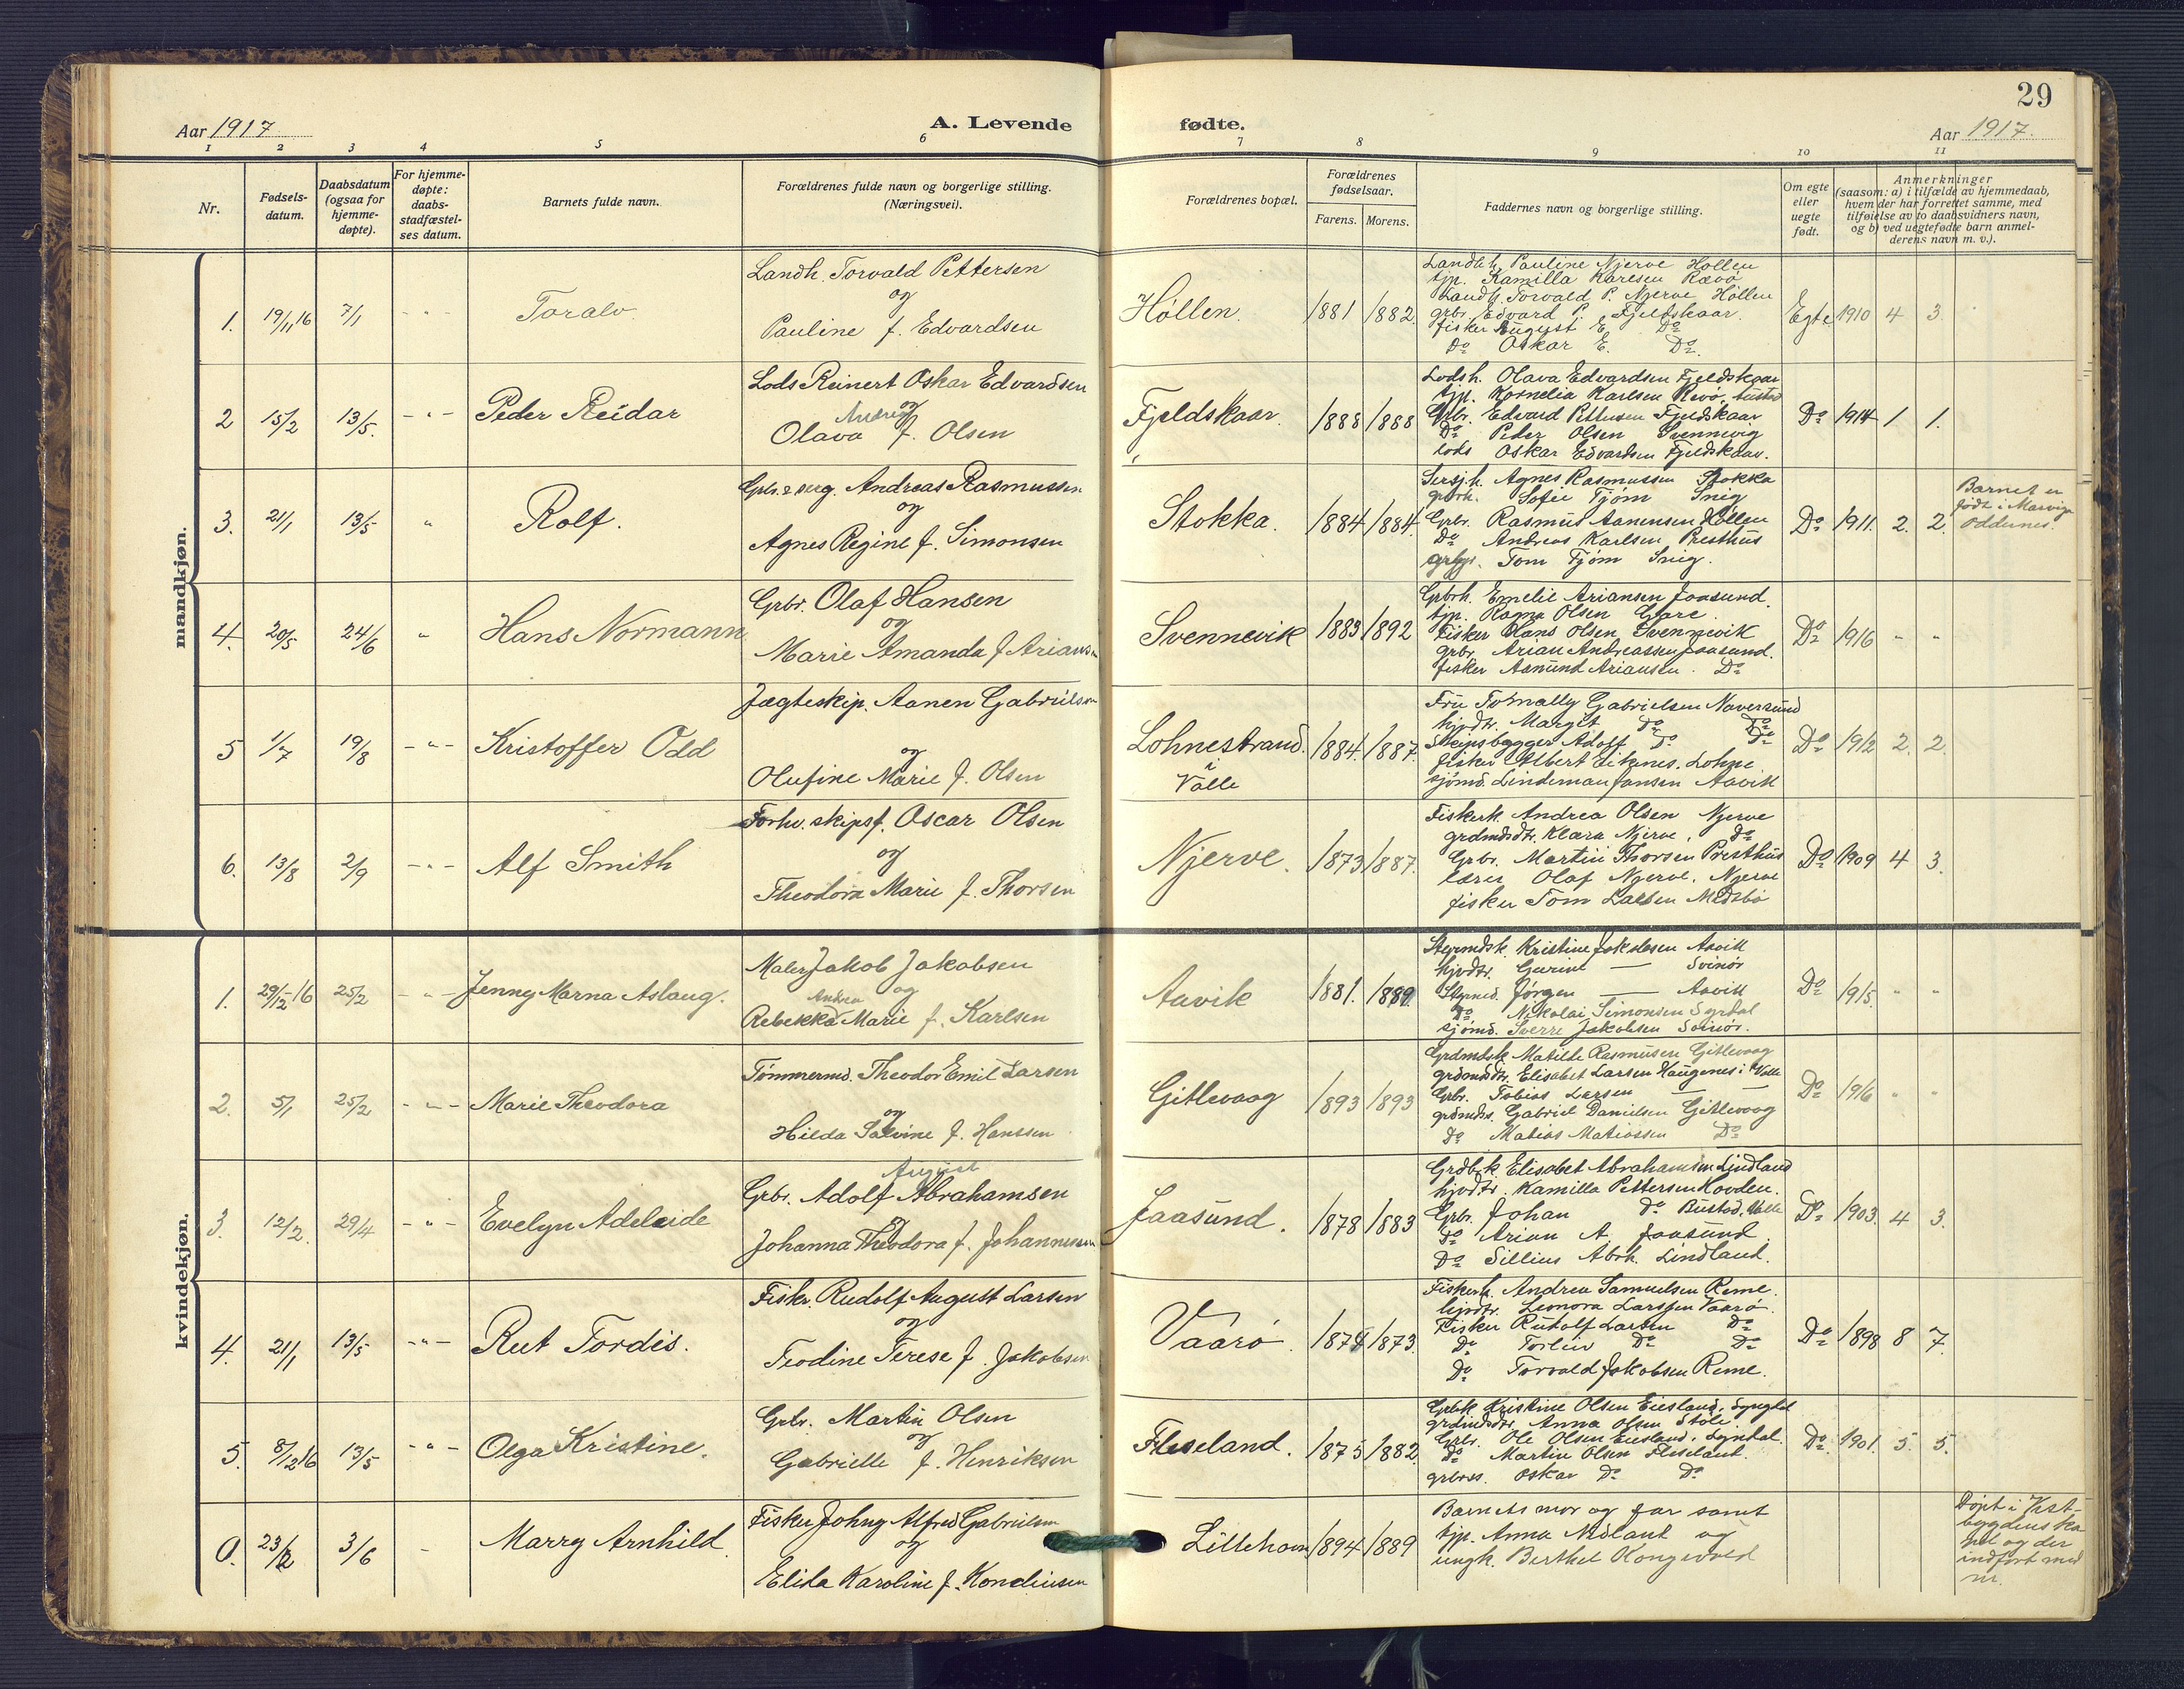 Aar 1917
A. Levende
fødte.
29
Aar 1917.
1 2 3 4 5 6 7 8 9 10 11
Nr.
Fødsels-
datum.
Daabsdatum
(ogsaa for
hjemme-
døpte).
For hjemme-
døpte:
daabs-
stadfæstel-
ses datum.
Barnets fulde navn.
Forældrenes fulde navn og borgerlige stilling.
(Næringsvei).
Forældrenes bopæl.
Forældrenes
fødselsaar.
Farens. Morens.
Faddernes navn og borgerlige stilling.
Om egte
eller
uegte
født.
Anmerkninger
(saasom: a) i tilfælde av hjemmedaab,
hvem der har forrettet samme, med
tilføielse av to daabsvidners navn,
og b) ved uegtefødte barn anmel-
derens navn m. v.).
mandkjøn.
1. 19/11 16 7/1 - " - Toralv
Landh. Torvald Pettersen
og
Pauline f. Edvardsen
Høllen. 1881 1882.
Landh. Pauline Njerve Høllen
tjp. Kamilla Karlsen Rævø
Landh. Torvald P. Njerve Høllen
grbr. Edvard P. Fjeldskaar.
fisker August E. Do
Do Oskar E. Do
Egte 1910 4 3.
2 15/2 13/5. - " - Peder Reidar
Lods Reinert Oskar Edvardsen
og
Andrea
Olava f. Olsen
Fjeldskaar. 1888 1888
Lodsh. Olava Edvardsen Fjeldskaar
tjp. Kornelia Karlsen Revø,
Grbr. Edvard Pettersen Fjeldskaar
Do Peder Olsen Svennevig
lods Oskar Edvardsen Fjeldskaar.
Do 1914 1 1.
3. 21/1 13/5 " Rolf.
Grbr. & serg. Andreas Rasmussen
og
Agnes Regine f. Simonsen
Stokka. 1884 1884.
Sersj.h. Agnes Rasmussen Stokka
grbrh. Sofie Tjøm Snig
Grbr. Rasmus Aanensen Høllen
Do Andreas Karlsen Presthus
Tom Tjøm Snig.
Do 1911. 2. 2.
Barnet er
født i Marvigs
Oddernes.
4. 20/5 24/6 " Hans Normann
Grbr. Olaf Hansen
og
Marie Amanda f. Ariansen
Svennevik 1883 1892
Grbrh. Emelie Ariansen Jaasund.
tjp. Ragna Olsen Gare
Fisker Hans Olsen Svennevik
grbr. Arian Andreassen Jaasund.
fisker Aamund Ariansen. Do
Do 1916 " "
5 1/7 19/8 - " - Kristoffer Odd
Jægteskip. Aanen Gabrielsen
og
Olufine Marie f. Olsen
Lohnestrand.
i
Valle
1884. 1887.
Fru Tomally Gabrielsen Naversund
hjvdtr. Margit Do Do
Skipsbygger Adolf Do Do
fisker Albert Eikenes. Lohne
sjømd. Lindeman Jansen Aavik
Do 1912 2. 2.
6. 13/8 2/9 - " - Alf Smith
Forhv. skipsf. Oscar Olsen
og
Theodora Marie f. Thorsen
Njerve. 1873 1887.
Fiskerk. Andrea Olsen Njerve
grdmdsdtr. Klara Njerve, do
Grbr. Martin Thorsen Presthus
lærer Olaf Njerve. Njerve
fisker Tom Larsen Medsbø
Do 1909 4 3.
kvindekjøn.
1. 29/12 16 25/2 - " - Jenny Marna Aslaug.
Maler Jakob Jakobsen
og
Andrea
Rebekka Marie f. Karlsen
Aavik 1881. 1889.
Styrmdsk. Kristine Jakobsen Aavik
hjvdtr. Gurine — Svinør
Styrmd. Jørgen — Aavik
Do Nikolai Simonsen Syrdal
sjømd. Sverre Jakobsen Svinør.
Do 1915. " "
2. 5/1 25/2 - " - Marie Theodora
Tømmermd. Theodor Emil Larsen
og
Hilda Salvine f. Hanssen
Gitlevaag 1893 1893
Grdmdsk. Matilde Rasmusen Gitlevaag
grdmdsdtr. Elisabet Larsen Haugenes i Valle
Grbr. Tobias Larsen —
grdmds. Gabriel Danielsen Gitlevaag
Do Matias Matiassen Do
Do 1916 " "
3. 12/2. 29/4 - " - Evelyn Adeleide
August
Grbr. Adolf Abrahamsen
og
Johanna Theodora f. Johannessen
Jaasund. 1878 1883
Grdbrk Elisabet Abrahamsen Lindland
hjvdtr. Kamilla Pettersen Hovden.
Grbr. Johan Do Bustad, Valle
Do Arian A. Jaasund
Do Sillius Abrh. Lindland.
Do 1903. 4 3.
4. 21/1 13/5 - " - Rut Tordis.
Fisker. Rudolf August Larsen
og
Teodine Terese f. Jakobsen
Vaarø. 1874 1873.
Fiskerh. Andrea Samuelsen Reme.
hjvdtr. Leonora Larssen Vaarø.
Fisker Rudolf Larsen Do
Do Torleiv Do Do
Do Torvald Jakobsen Reme.
Do 1898 8 7.
5. 8/12 16 13/5 - " - Olga Kristine.
Grbr. Martin Olsen
og
Gabrielle f. Henriksen
Fleseland. 1875 1882
Grbrk Kristine Olsen Eiesland,
grdmdsdtr. Anna Olsen Støle.
Grbr. Ole Olsen Eiesland, Lyngdal.
Do Martin Olsen Fleseland.
grbrss. Oskar Do Do
Do 1901. 5. 5.
0. 23/2 3/6 - Marry Arnhild
Fisker Johny Alfred Gabrielsen
og
Elida Karoline f. Kondensen
Lillehavn 1894 1889
Barnets mor og far samt
tjp. Anna Nedland og
ungk. Berthel Kongevold
Døpt i Vest-
bygdens ka
pel og der
indført med
nr.